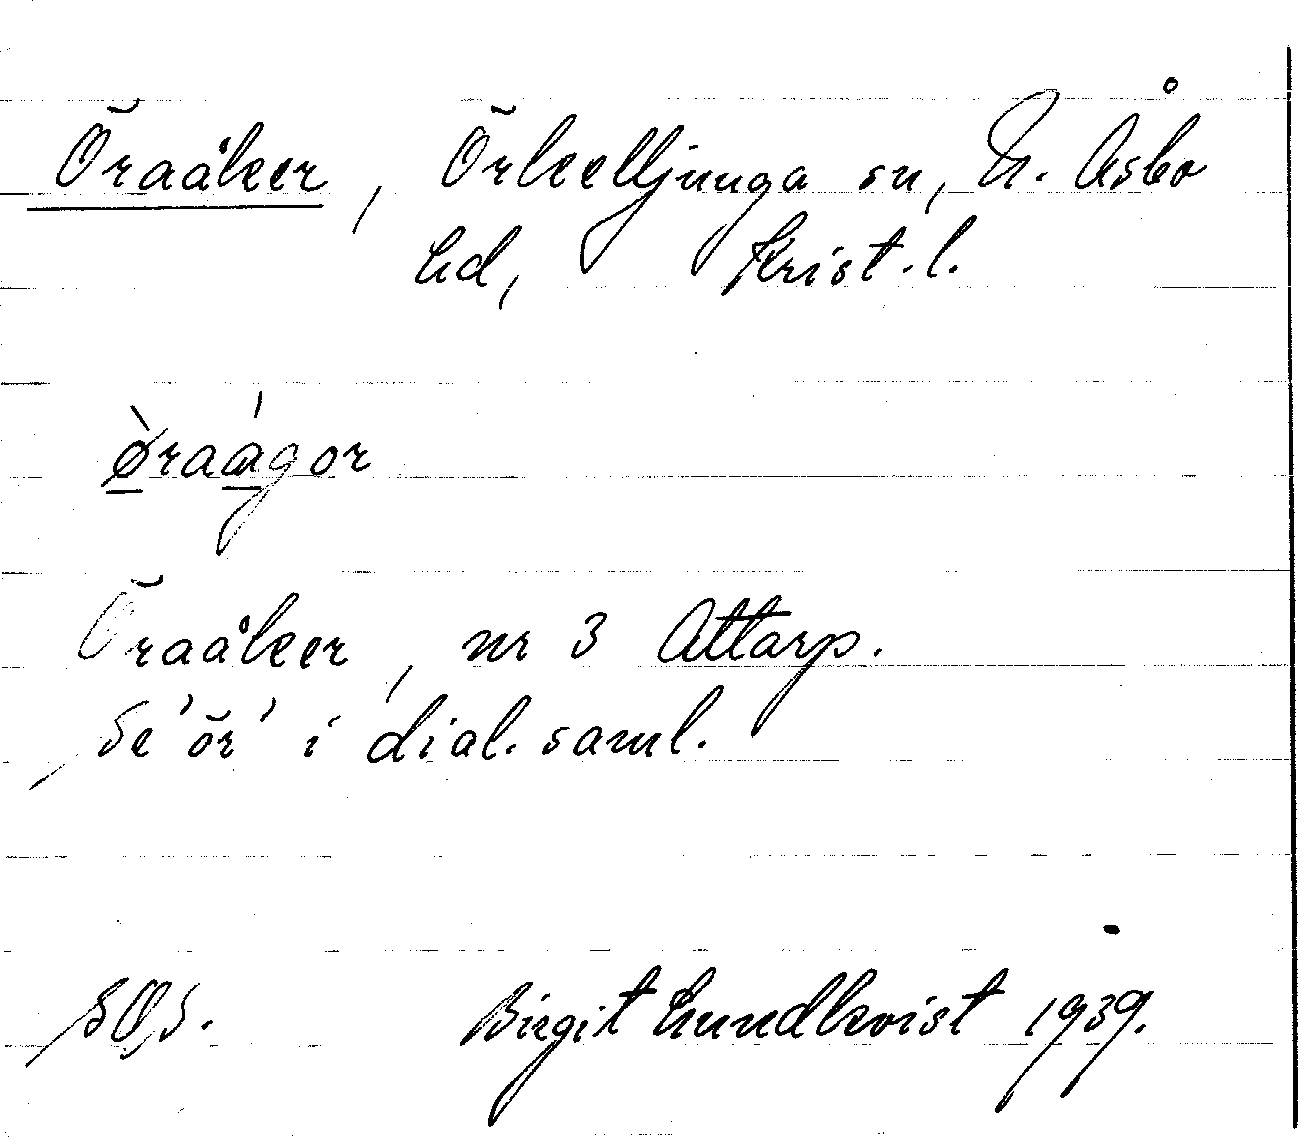 Öraåker, Örkelljunga sn, N. Åsbo
hd, Krist. l.
ø̀raágor
Öraåker, nr 3 Attarp.
Se 'ör' i dial. saml.
SOS. Birgit Lundkvist 1939.